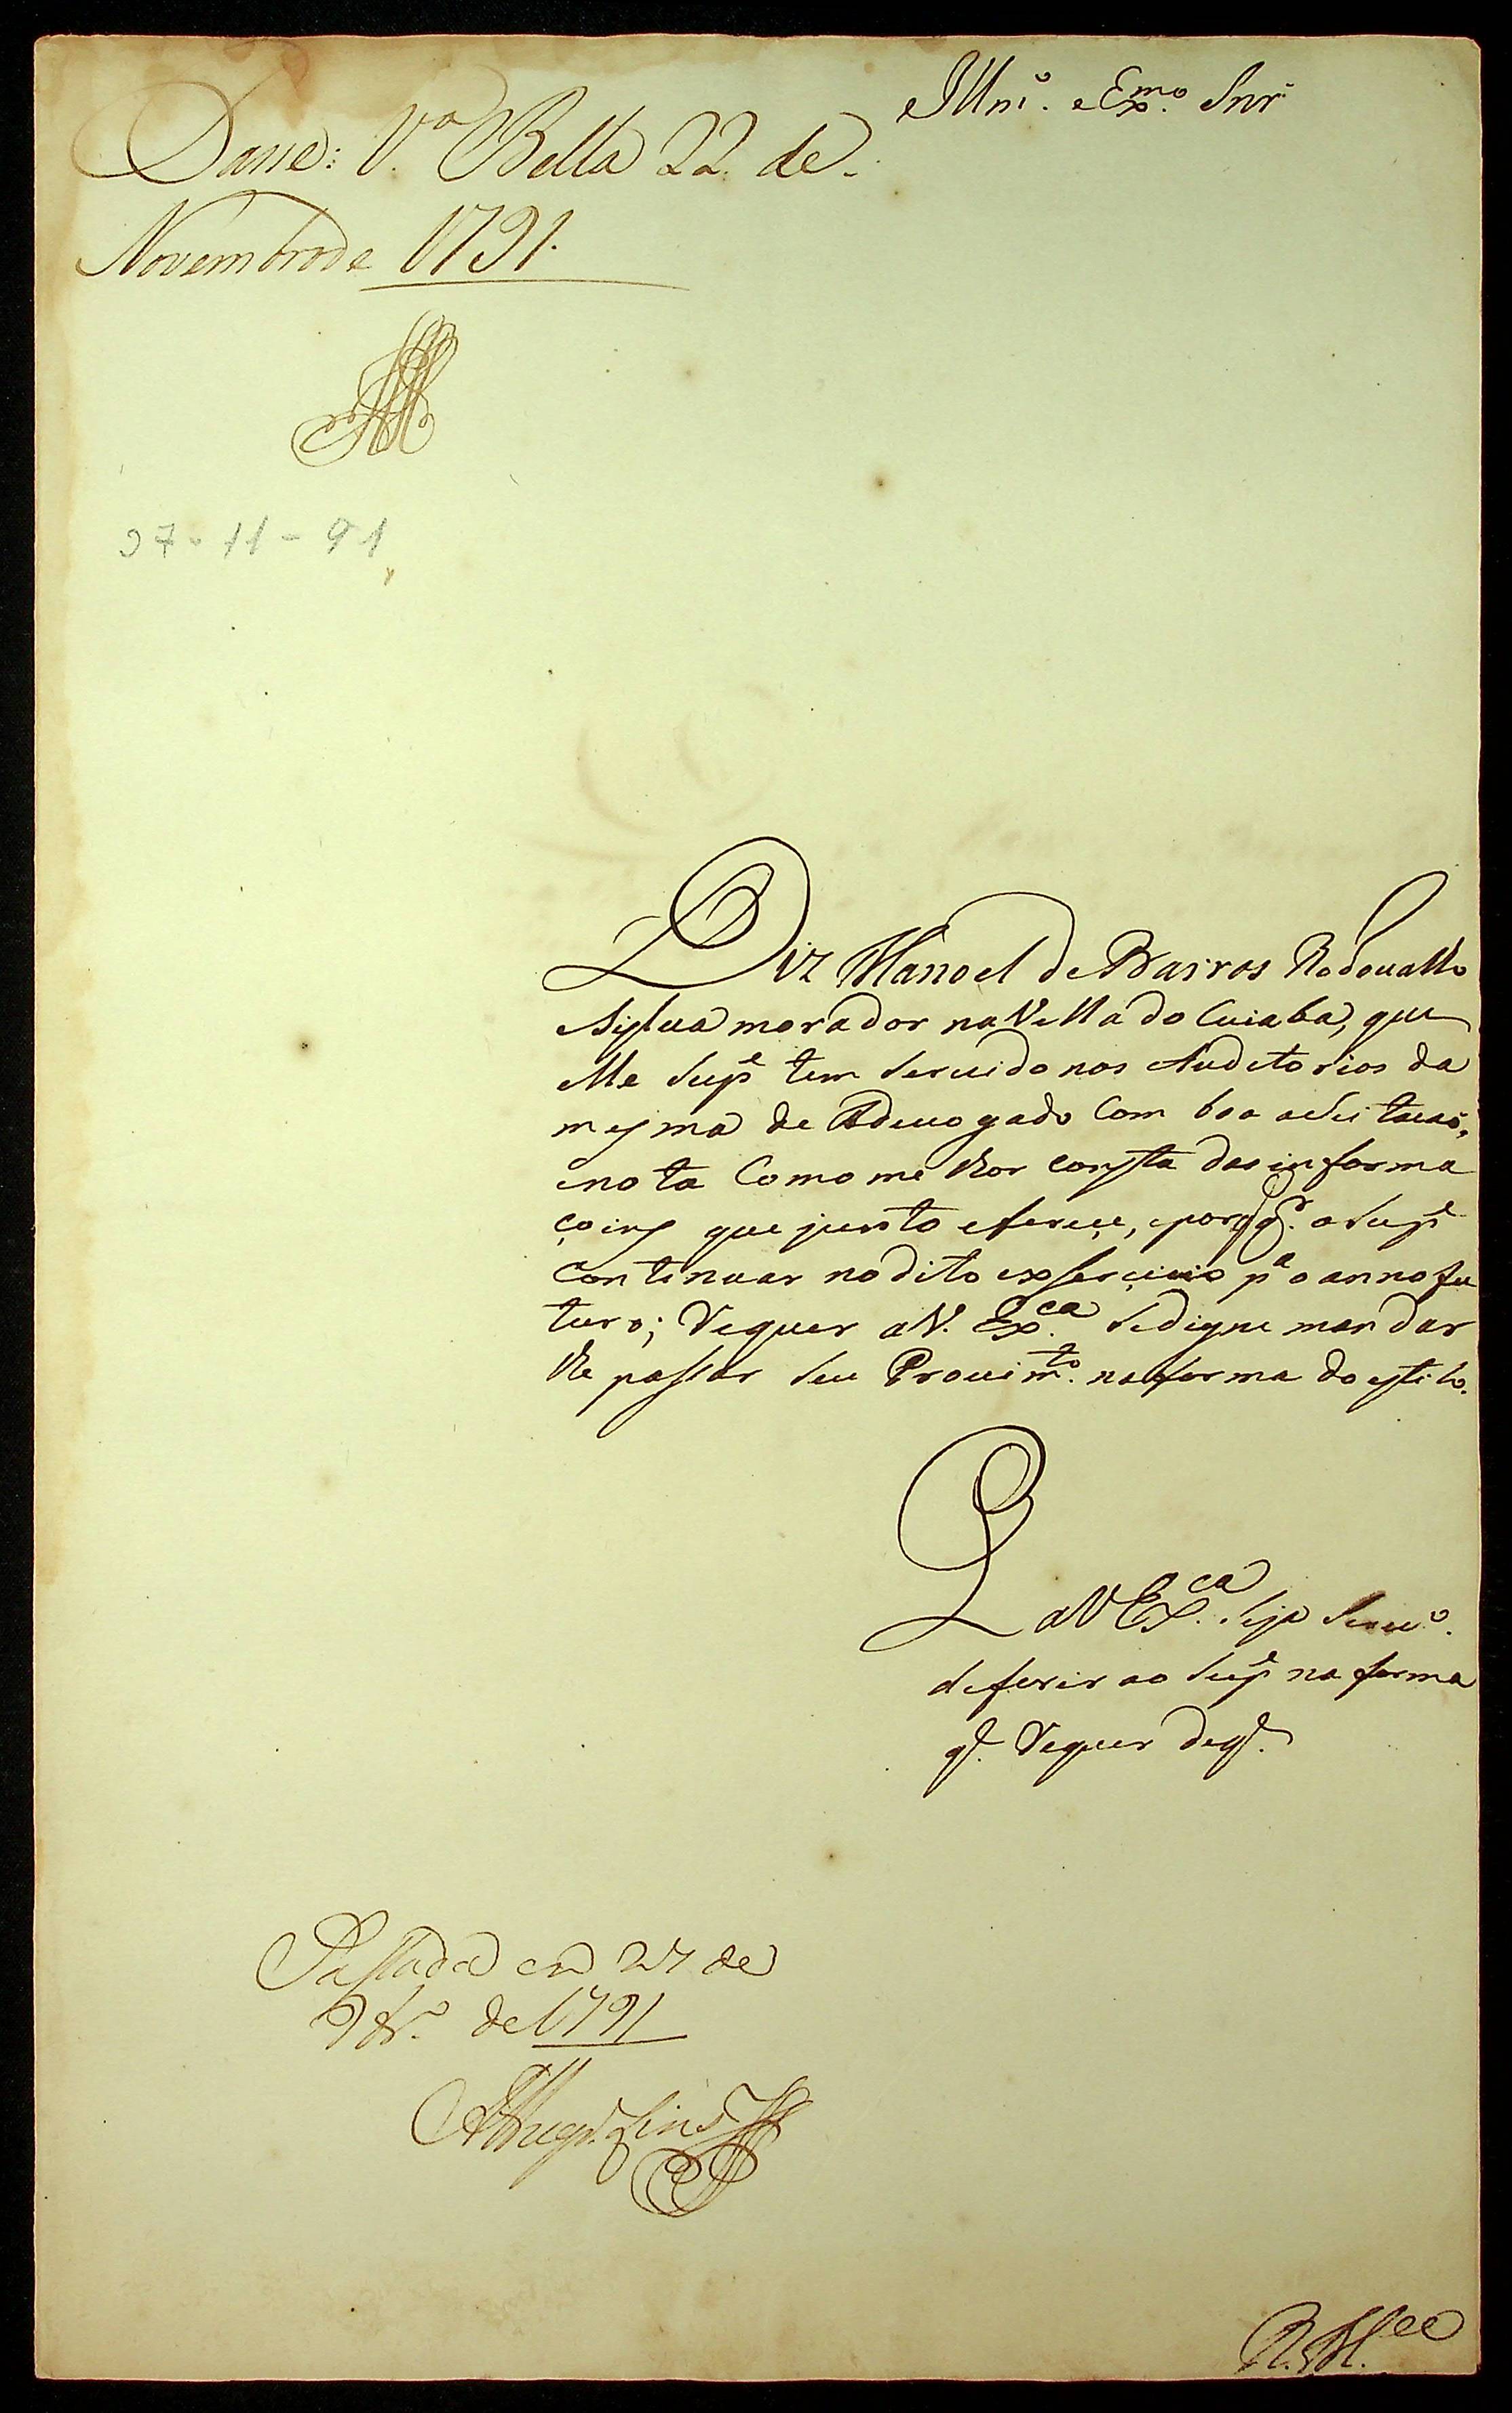 Illmo. e Exmo. Snr.
Passe: Va. Bella 22 de
Novembro de 1791.
27-11-91
Diz Manoel de Barros Rodoualho
e Sylua morador na Villa do Cuiaba, que
elle Supe. tem seruido nos Auditorios da
mesma de Aduogado Com boa aseitacaõ,
e nota Como melhor consta das informa
coins que junto oferece, e porq qr. o Supe.
continuar no dito exsercicio pa. o anno fu
turo; Requer a V. Exca. se digne mandar
lhe passar seu Prouimto. na forma do estilo.
P. a V Exca. seja seruo.
deferir ao Supe. na forma
q. Requer deq.
Passada em 27 de
9bro. de 1791
R. M.ce